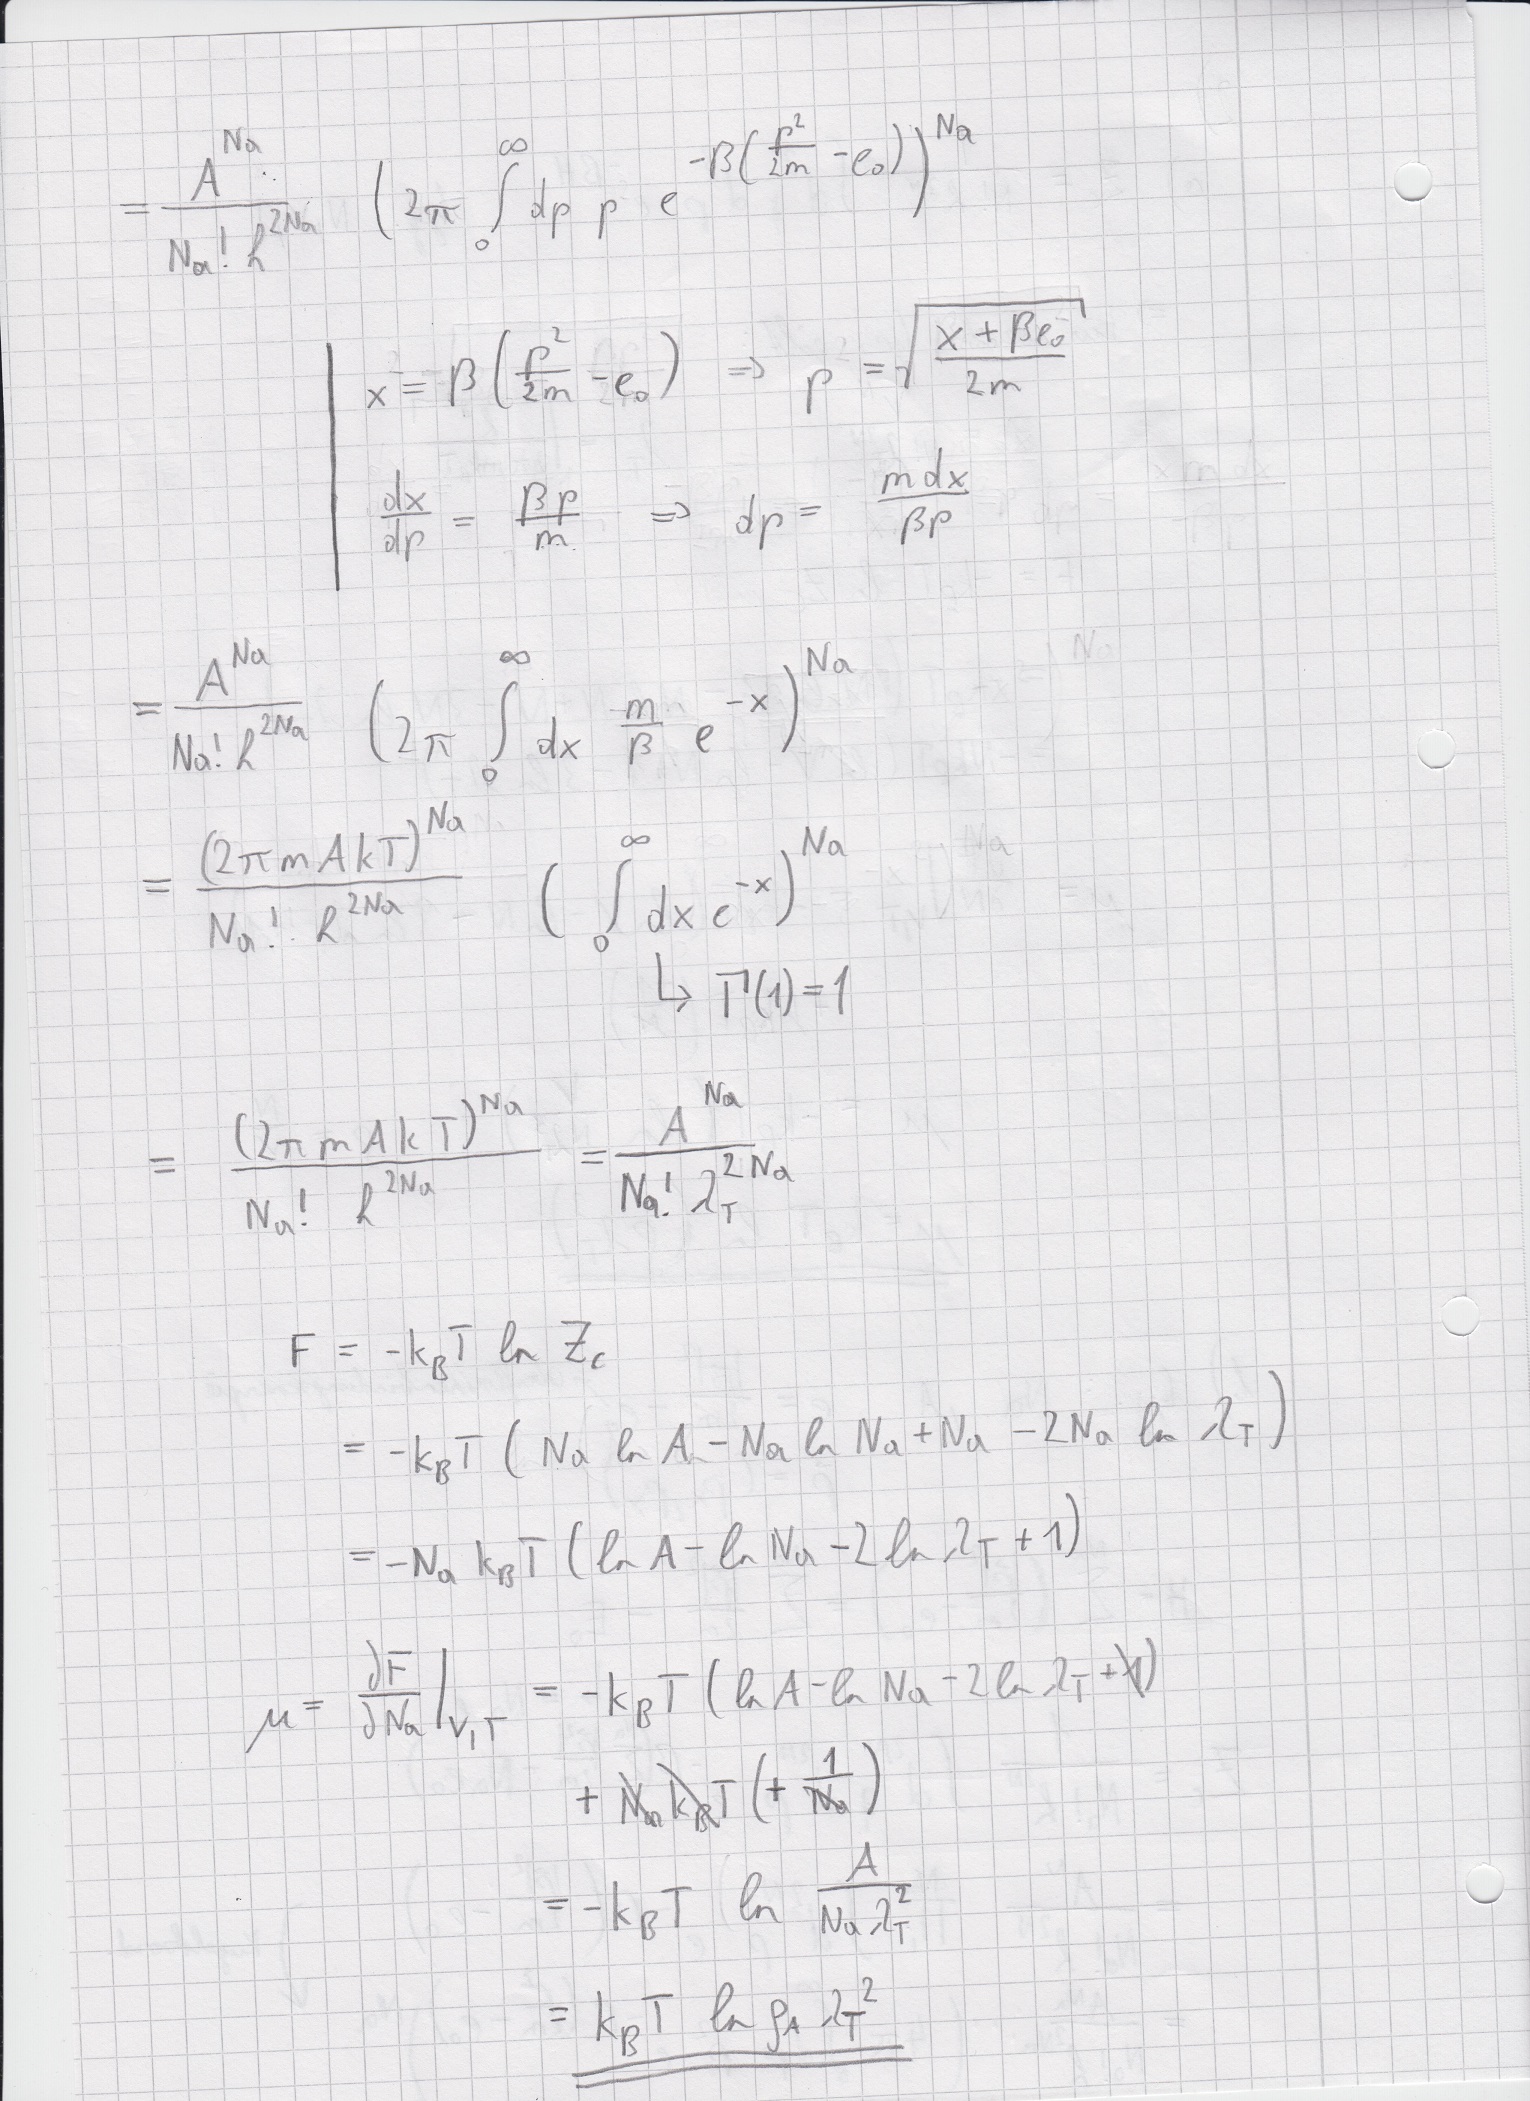 = A^{Na} / (Na! h^{2Na}) (2π ∫_0^∞ dp p e^{-β(p²/2m - e₀)})^{Na}
x = β(p²/2m - e₀) ⇒ p = √((x + βe₀)/2m)
dx/dp = βp/m ⇒ dp = m dx/βp
= A^{Na} / (Na! h^{2Na}) (2π ∫_0^∞ dx m/β e^{-x})^{Na}
= (2π m A k T)^{Na} / (Na! h^{2Na}) (∫_0^∞ dx e^{-x})^{Na}
↳ Γ(1) = 1
= (2π m A k T)^{Na} / (Na! h^{2Na}) = A^{Na} / (Na! λ_T^{2Na})
F = -k_B T ln Z_c
= -k_B T (Na ln A - Na ln Na + Na - 2Na ln λ_T)
= -Na k_B T (ln A - ln Na - 2 ln λ_T + 1)
μ = ∂F/∂Na |_{V,T} = -k_B T (ln A - ln Na - 2 ln λ_T + 1)
+ Na k_B T (+ 1/Na)
= -k_B T ln A/(Na λ_T²)
= k_B T ln ρ_A λ_T²